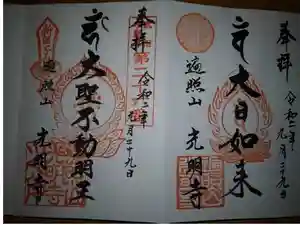 奉拝
令和二年九月二十九日
大日如来
遍照山
光明寺
奉拝
令和二年
九月二十九日
大聖不動明王
遍照山
光明寺